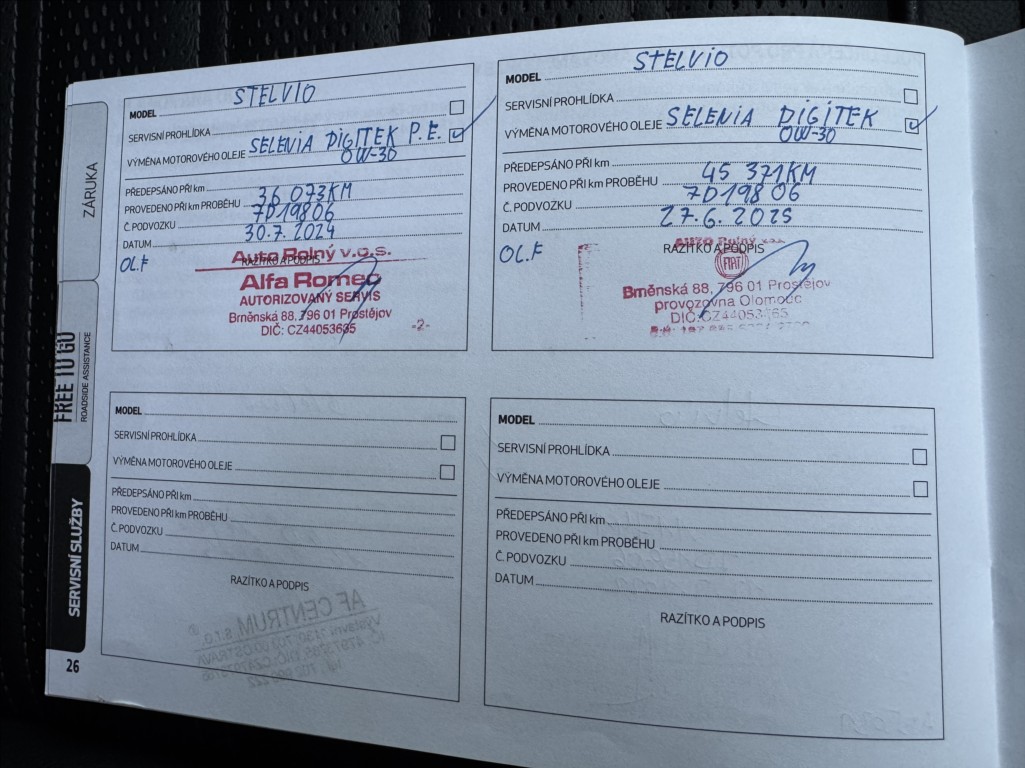 MODEL STELVIO
SERVISNÍ PROHLÍDKA
VÝMĚNA MOTOROVÉHO OLEJE SELENIA DIGITEK P.E.
0W-30
PŘEDEPSÁNO PŘI km
PROVEDENO PŘI km PROBĚHU 36 073KM
Č. PODVOZKU 7D19806
DATUM 30.7.2024
OL.F
RAZÍTKO A PODPIS
Auto Polný v.o.s.
Alfa Romeo
AUTORIZOVANÝ SERVIS
Brněnská 88, 796 01 Prostějov
DIČ: CZ44053685
-2-
MODEL STELVIO
SERVISNÍ PROHLÍDKA
VÝMĚNA MOTOROVÉHO OLEJE SELENIA DIGITEK
0W-30
PŘEDEPSÁNO PŘI km
PROVEDENO PŘI km PROBĚHU 45 371KM
Č. PODVOZKU 7D19806
DATUM 27.6.2025
OL.F
RAZÍTKO A PODPIS
FIAT
Brněnská 88, 796 01 Prostějov
provozovna Olomouc
MODEL
SERVISNÍ PROHLÍDKA
VÝMĚNA MOTOROVÉHO OLEJE
PŘEDEPSÁNO PŘI km
PROVEDENO PŘI km PROBĚHU
Č. PODVOZKU
DATUM
RAZÍTKO A PODPIS
MODEL
SERVISNÍ PROHLÍDKA
VÝMĚNA MOTOROVÉHO OLEJE
PŘEDEPSÁNO PŘI km
PROVEDENO PŘI km PROBĚHU
Č. PODVOZKU
DATUM
RAZÍTKO A PODPIS
ZÁRUKA
FREE TO GO
ROADSIDE ASSISTANCE
SERVISNÍ SLUŽBY
26